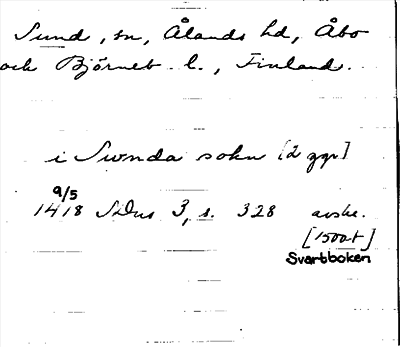 Sund, sn, Ålands hd, Åbo
och Björneb. l., Finland.
i Swnda sokn [2 ggr]
9/5
1418 SDns 3, s. 328 avskr.
[1500-t]
Svartboken